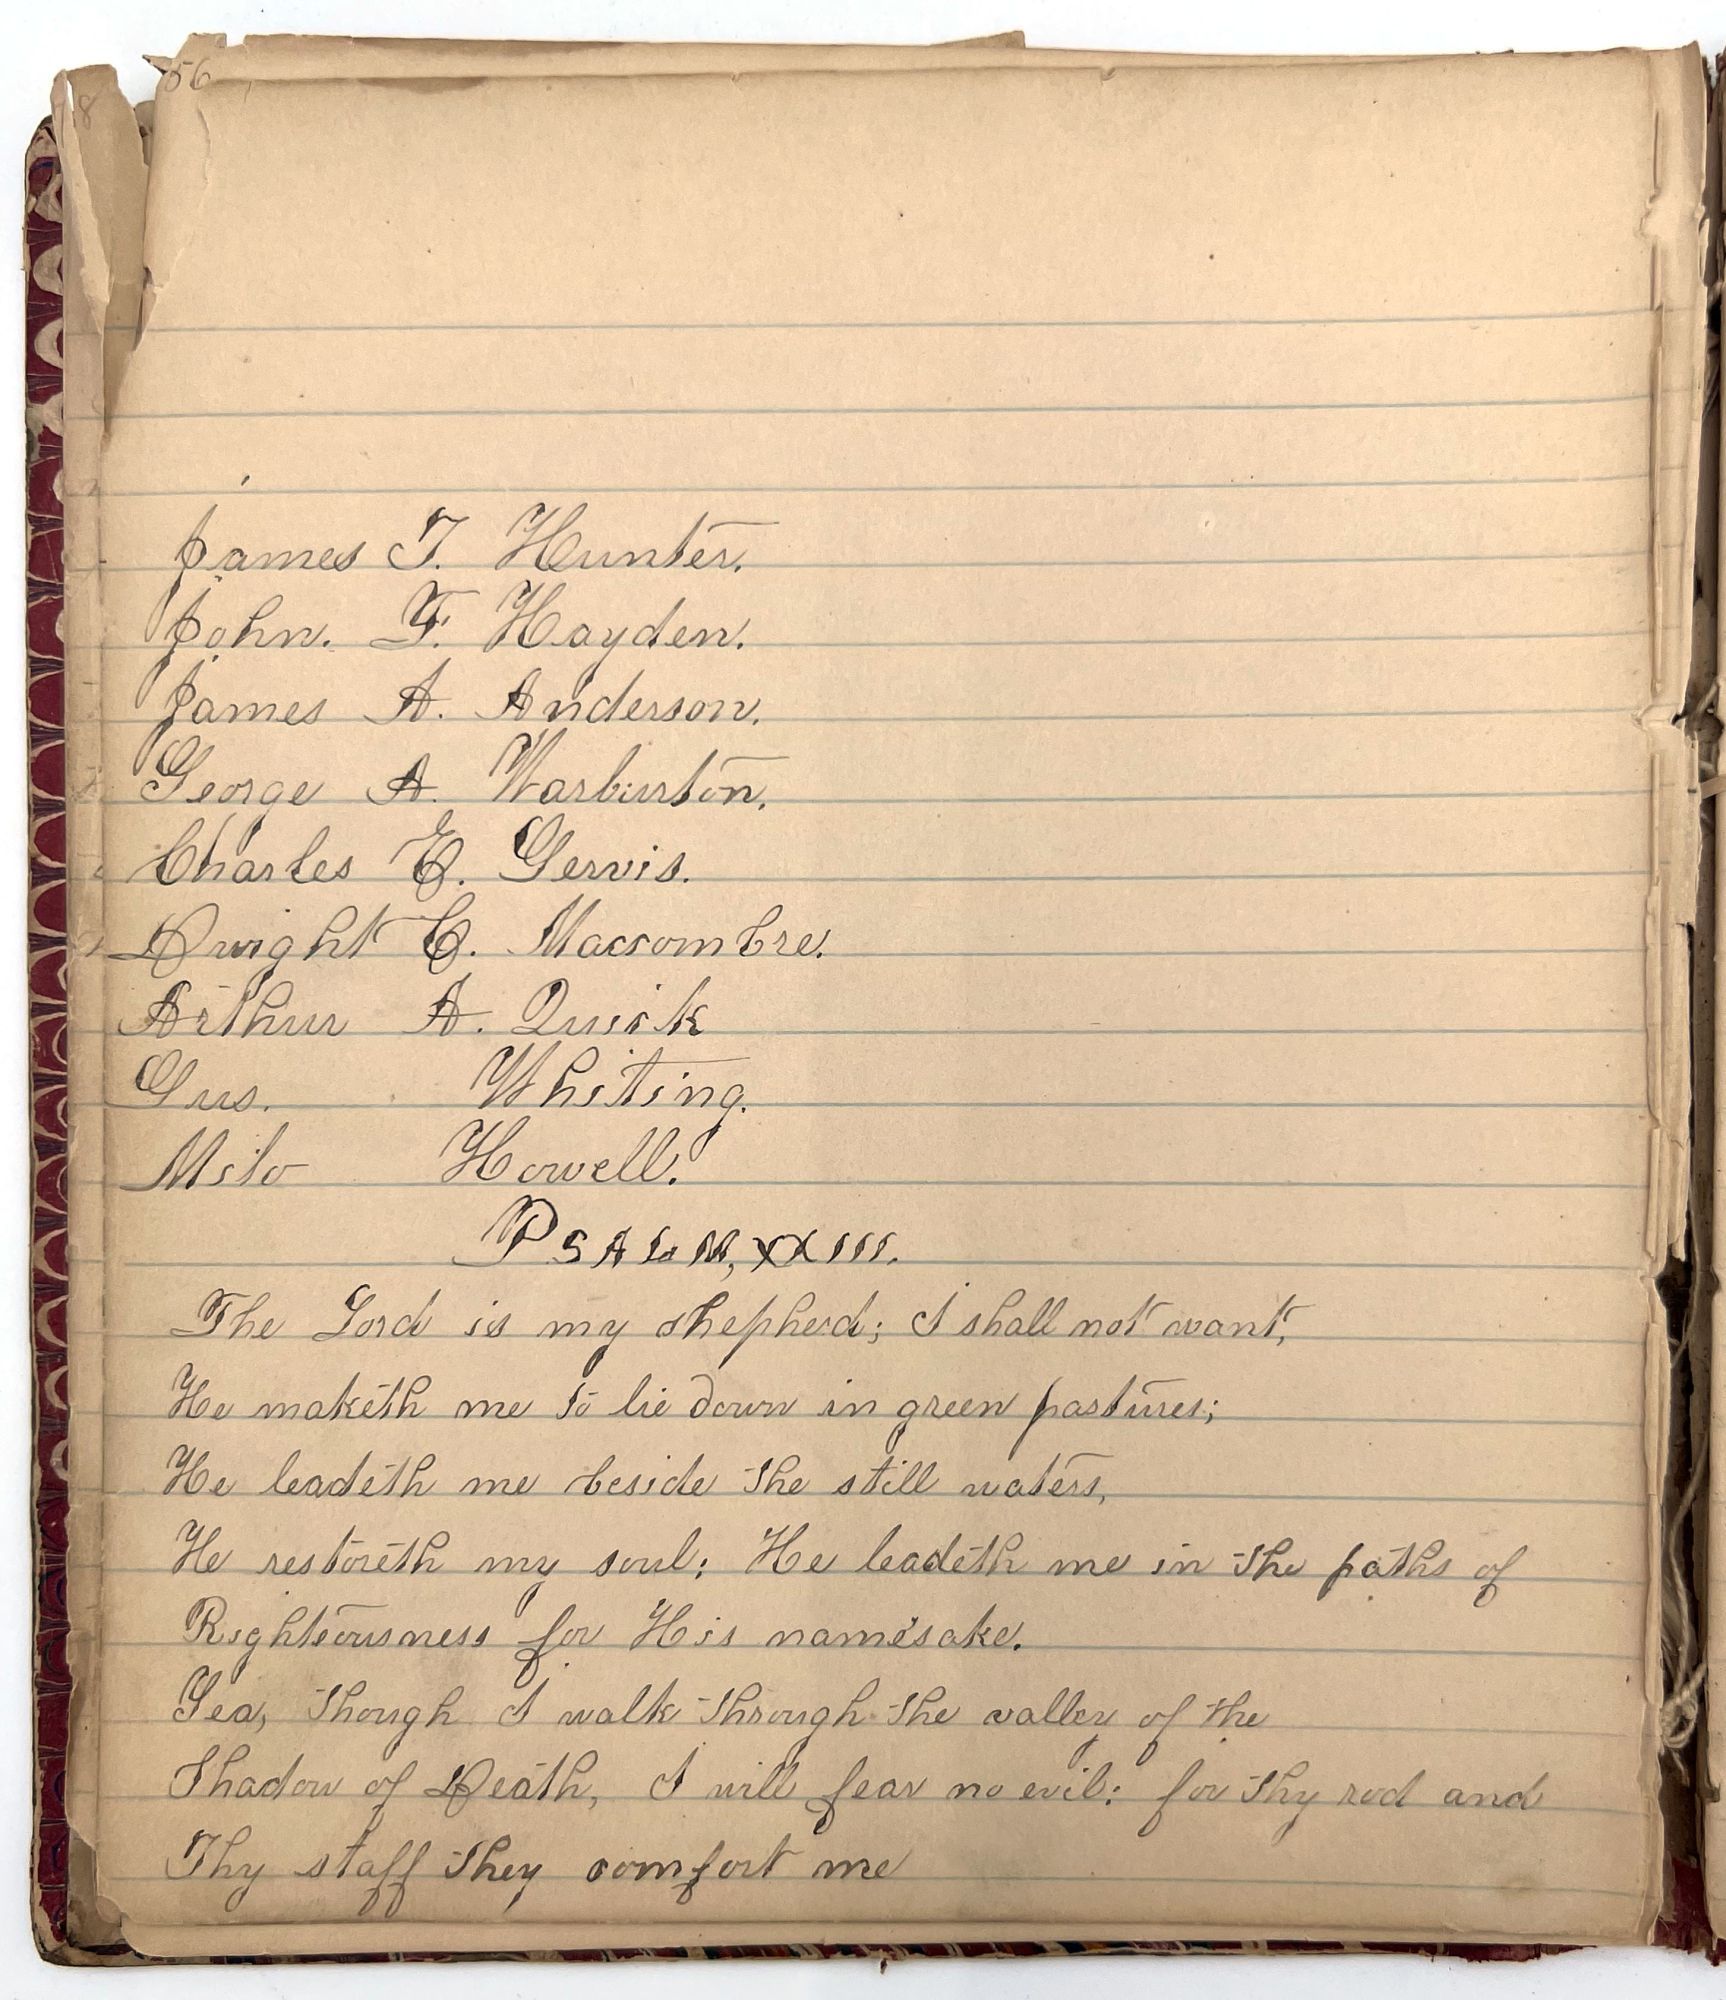 56
8
James T. Hunter.
John. F. Hayden.
James A. Anderson.
George A. Warburton.
Charles E. Gervis.
Dwight C. Macsombre.
Arthur A. Quick
Gus. Whiting.
Milo Howell.
PSALM, XXIII.
The Lord is my shepherd; I shall not want,
He maketh me to lie down in green pastures;
He leadeth me beside the still waters,
He restoreth my soul: He leadeth me in the paths of
Righteousness for His name'sake.
Yea, though I walk through the valley of the
Shadow of Death, I will fear no evil: for thy rod and
Thy staff they comfort me